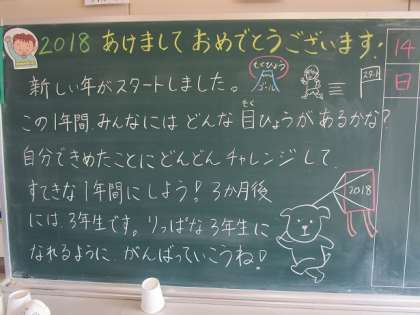 2018 あけまして おめでとうございます!
もくひょう
ゴール
スタート
14
日
新しい年がスタートしました。
この1年間、みんなには どんな 目ひょうが あるかな?
もく
自分できめたことに どんどん チャレンジ して、
すてきな 1年間に しよう! 3か月後
には、3年生です。りっぱな 3年生に
なれるように、がんばっていこうね!
2018